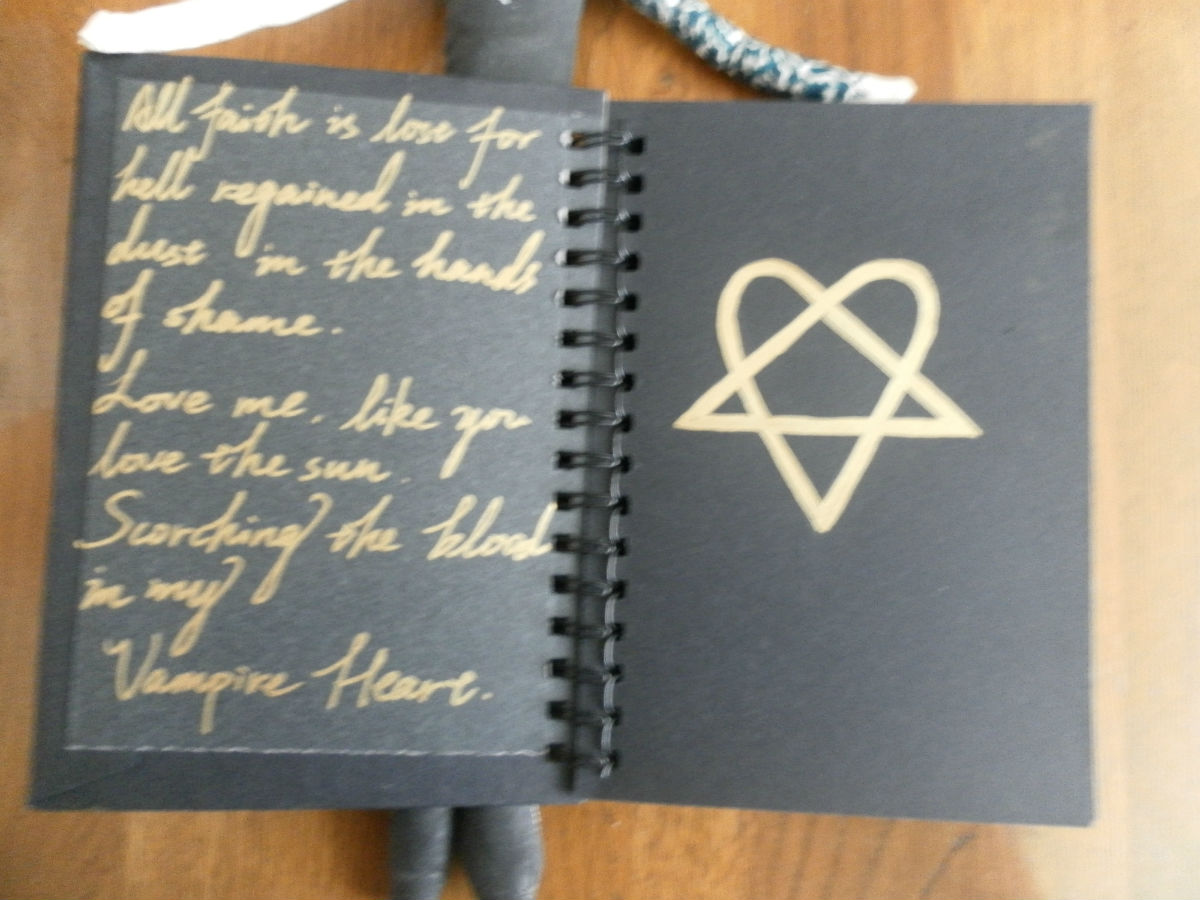 All faith is lost for
hell regained in the
dust in the hands
of shame.
Love me, like you
love the sun.
Scorching the blood
in my
Vampire Heart.